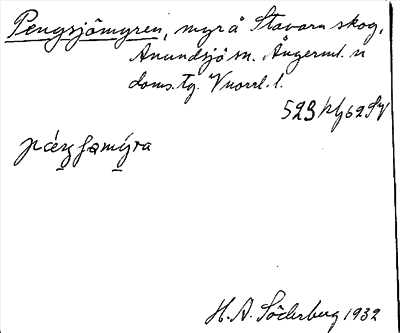 Pengsjömyren, myr å Stavarn skog,
Anundsjö sn. Ångerml. n
doms.tg. Vnorrl. l.
523 Hg62
H. A. Söderberg 1932